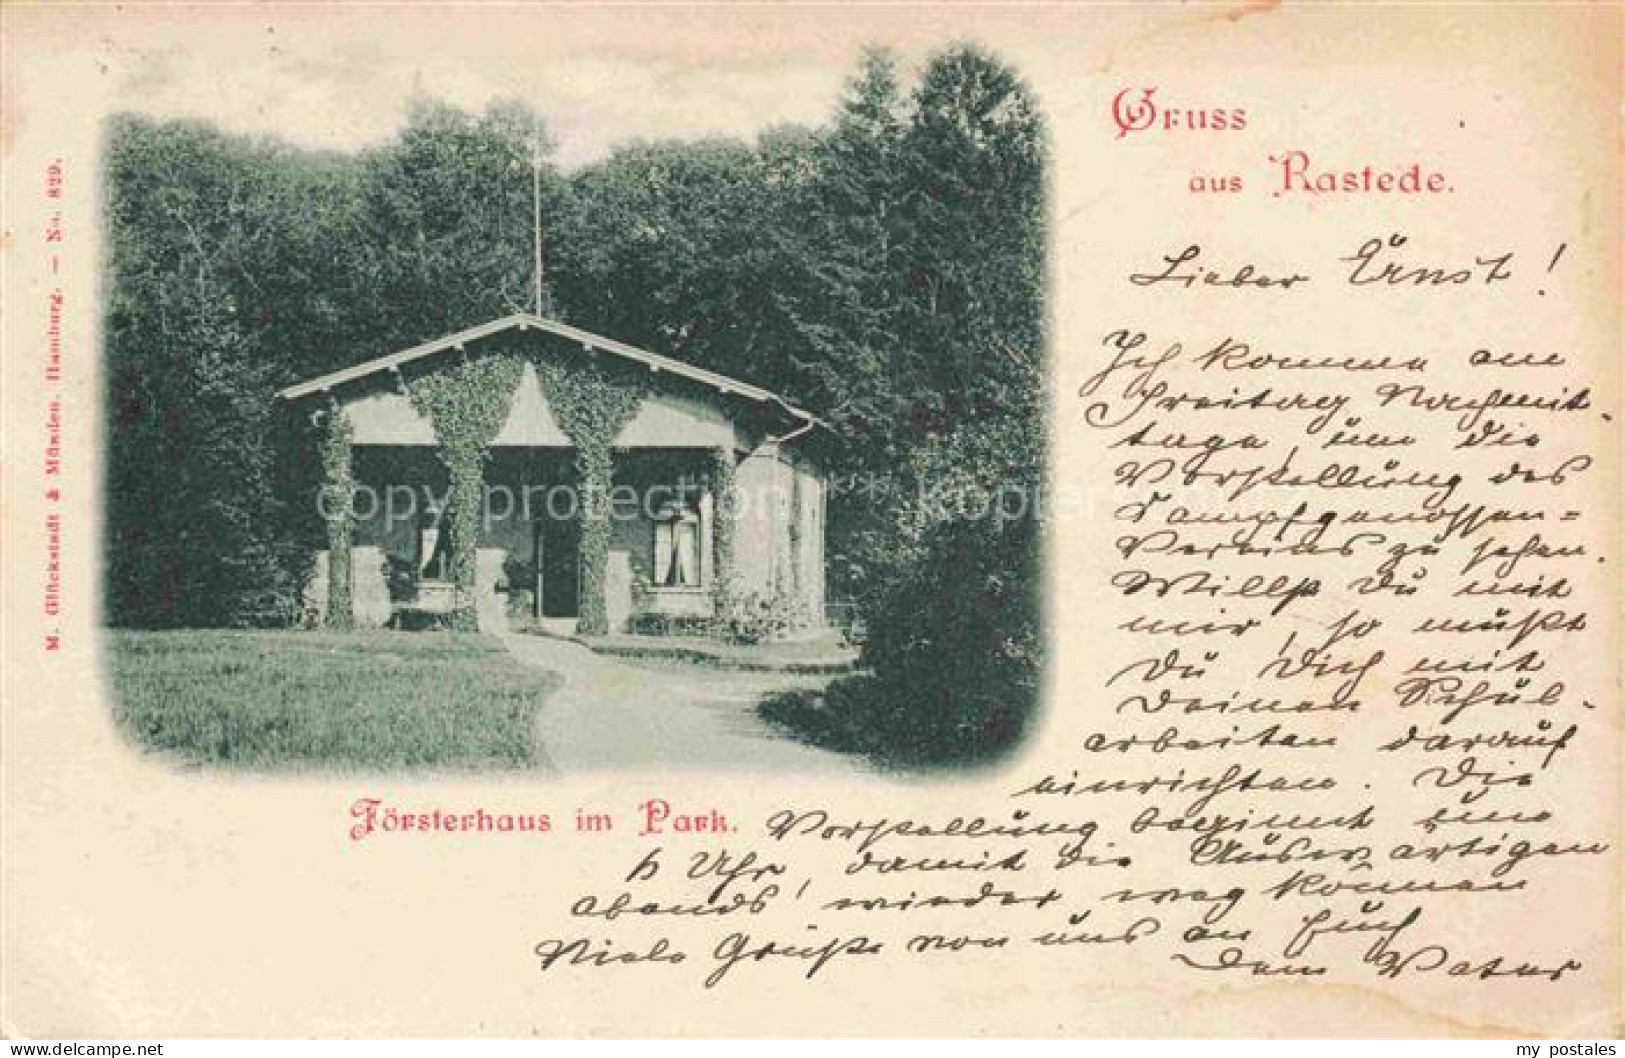 Gruss
aus Rastede.
M. Glückstadt & Münden, Hamburg. — No. 829.
copy protection
Försterhaus im Park.
Lieber Ernst!
Ich komme am
Freitag Nachmit-
tage, um die
Vorstellung des
Kampfgenossen=
Vereins zu sehen.
Willst Du mit
mir, so mußt
Du Dich mit
Deinen Schul-
arbeiten darauf
einrichten. Die
Vorstellung beginnt um
6 Uhr, damit die Auswärtigen
abends wieder weg können
Viele Grüße von uns an Euch
Dein Vater
my postales